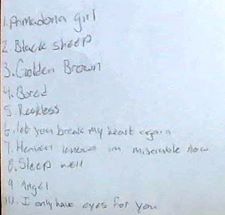 1. Primadona girl
2. Black sheep
3. Golden Brown
4. Bored
5. Reckless
6. let you break my heart again
7. Heaven knows im miserable now
8. Sleep well
9. Angel
10. I only have eyes for you